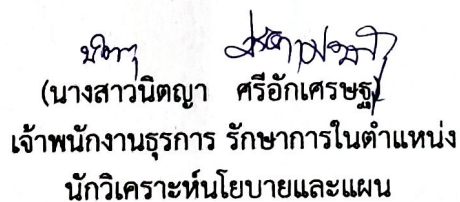 (นางสาวนิตญา ศรีอักเศรษฐ)
เจ้าพนักงานธุรการ รักษาการในตำแหน่ง
นักวิเคราะห์นโยบายและแผน